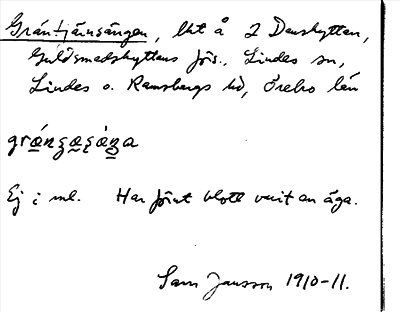 Gråntjärnsängen, lht å 2 Danshyttan,
Guldsmedshyttans förs., Lindes sn,
Lindes o. Ramsbergs hd, Örebro län
Ej i ml. Har förut blott varit en äga.
Sam Jansson 1910-11.